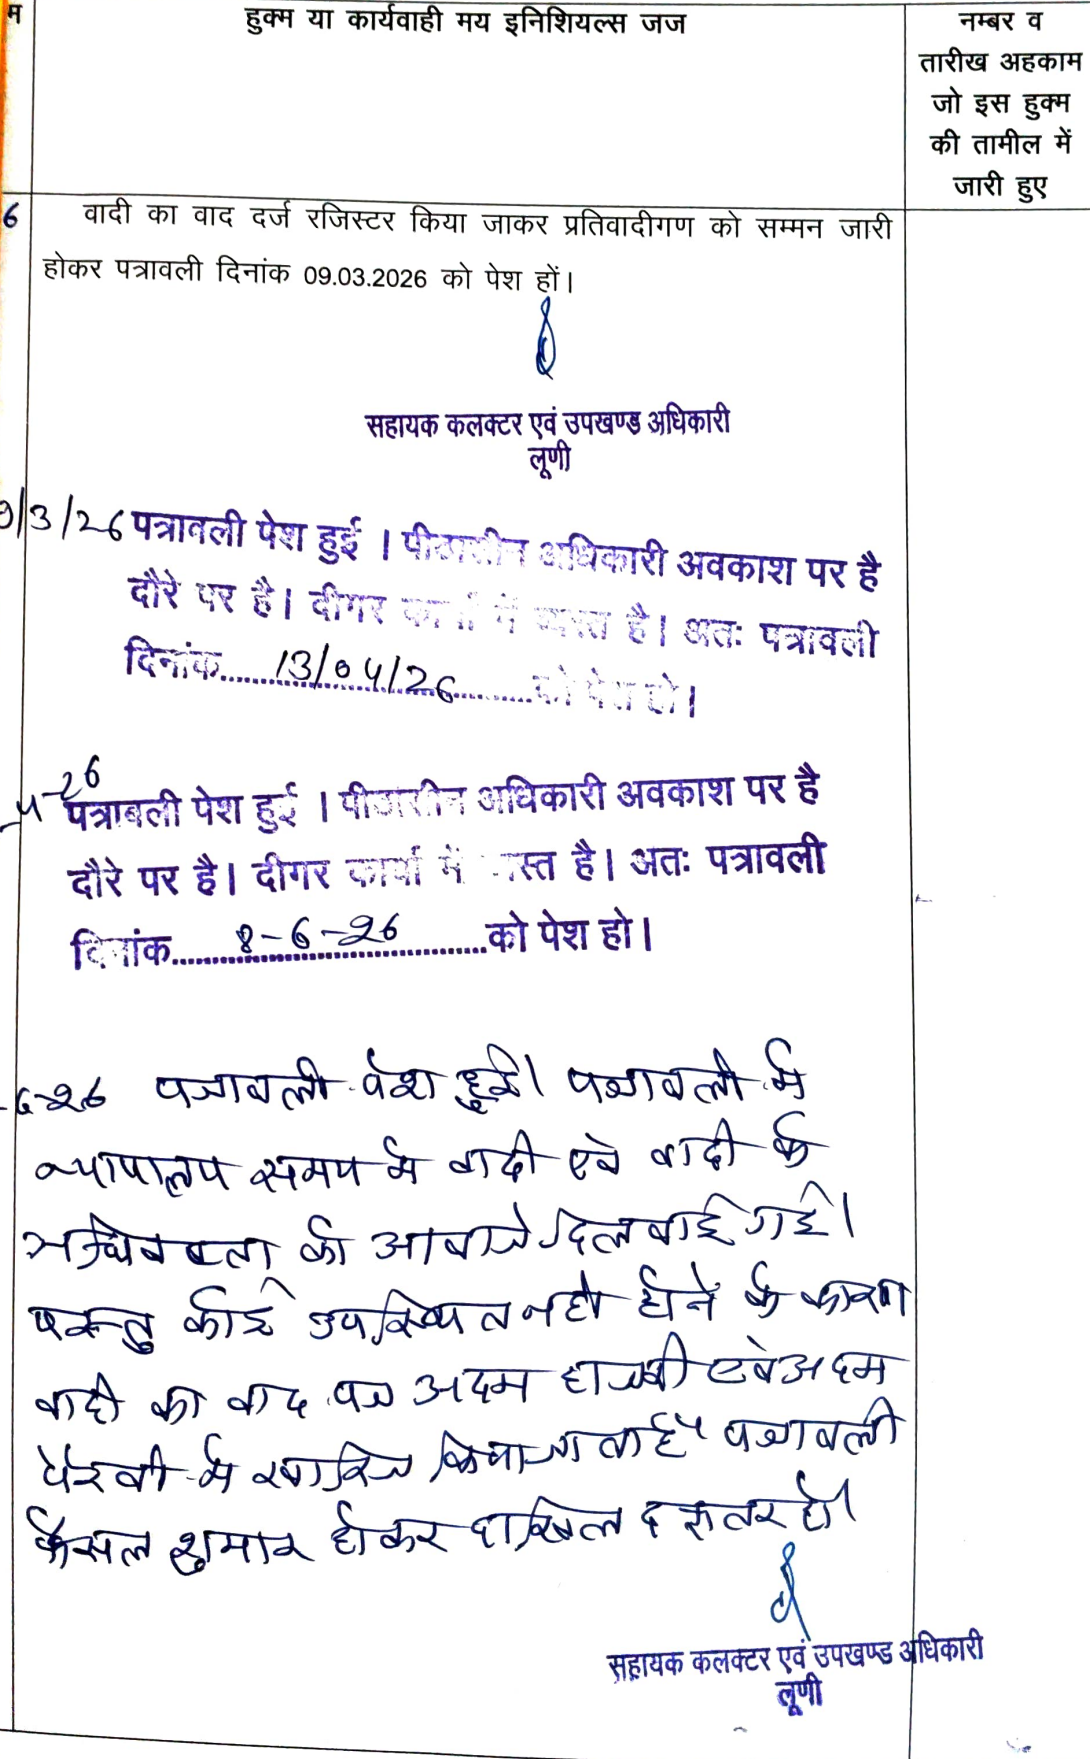 म
हुक्म या कार्यवाही मय इनिशियल्स जज
नम्बर व
तारीख अहकाम
जो इस हुक्म
की तामील में
जारी हुए
6
वादी का वाद दर्ज रजिस्टर किया जाकर प्रतिवादीगण को सम्मन जारी
होकर पत्रावली दिनांक 09.03.2026 को पेश हों।
सहायक कलक्टर एवं उपखण्ड अधिकारी
लूणी
9/3/26 पत्रावली पेश हुई । पीठासीन अधिकारी अवकाश पर है
दौरे पर है। दीगर कार्यो में व्यस्त है। अतः पत्रावली
दिनांक.....13/04/26.....को पेश हो।
4-26
पत्रावली पेश हुई । पीठासीन अधिकारी अवकाश पर है
दौरे पर है। दीगर कार्यो में व्यस्त है। अतः पत्रावली
दिनांक.....8-6-26.....को पेश हो।
-6-26 पत्रावली पेश हुई। पत्रावली में
न्यायालय समय में वादी एवं वादी के
अधिवक्ता को आवाजे दिलवाई गई।
परन्तु कोई उपस्थित नही होने के कारण
वादी का वाद पत्र अदम हाजरी एवं अदम
पैरवी में खारिज किया जाता है पत्रावली
फैसल शुमार होकर दाखिल दफ्तर हो।
सहायक कलक्टर एवं उपखण्ड अधिकारी
लूणी